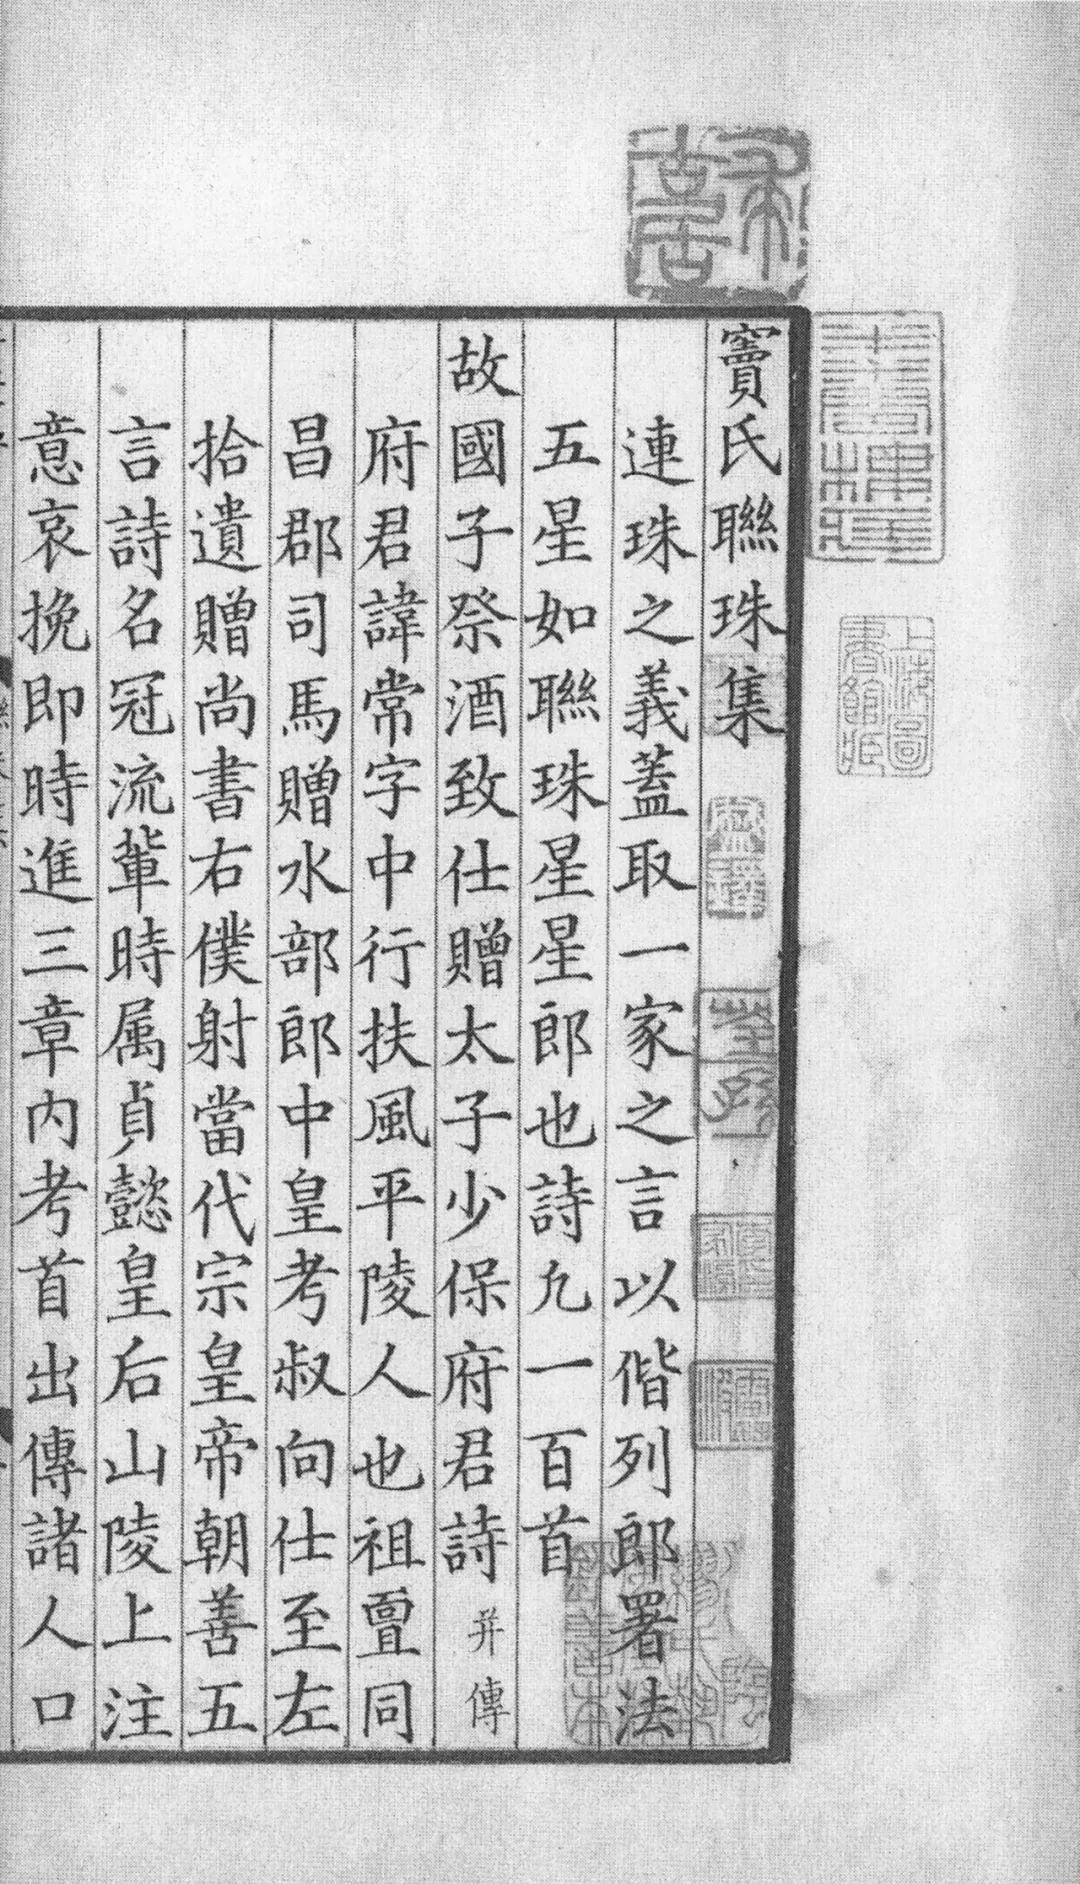 竇氏聯珠集
連珠之義蓋取一家之言以偕列郎署法
五星如聯珠星星郎也詩凢一百首
故國子祭酒致仕贈太子少保府君詩 并傳
府君諱常字中行扶風平陵人也祖亶同
昌郡司馬贈水部郎中皇考叔向仕至左
拾遺贈尚書右僕射當代宗皇帝朝善五
言詩名冠流輩時属貞懿皇后山陵上注
意哀挽即時進三章内考首出傳諸人口
上海圖書館藏